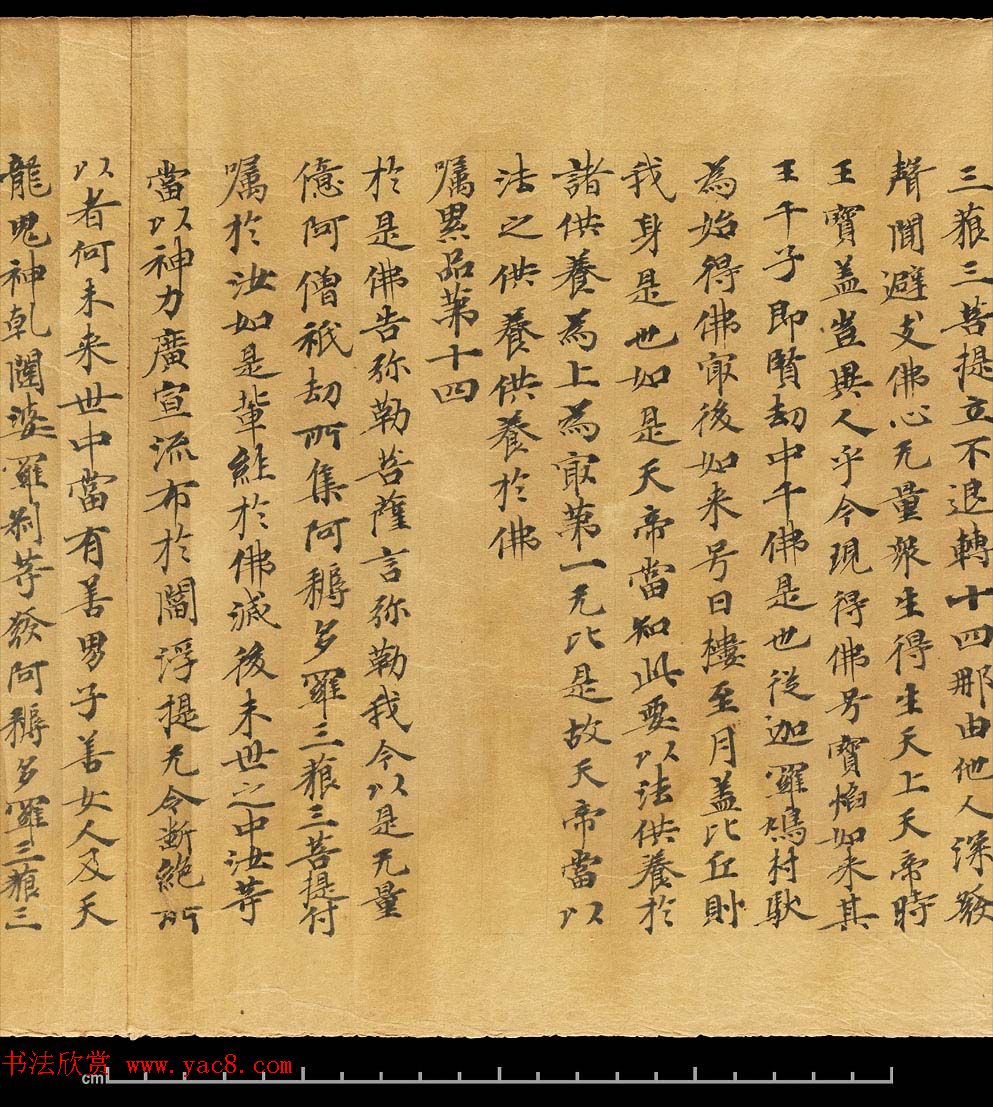 三藐三菩提立不退轉十四那由他人深發
聲聞避支佛心无量衆生得生天上天帝時
王寶盖豈異人乎今現得佛号寶焰如来其
王千子即賢劫中千佛是也從迦羅鳩村馱
為始得佛㝡後如来号曰樓至月盖比丘則
我身是也如是天帝當知此要以法供養於
諸供養為上為㝡第一无比是故天帝當以
法之供養供養於佛
嘱累品第十四
於是佛告弥勒菩薩言弥勒我今以是无量
億阿僧祇劫所集阿耨多羅三藐三菩提付
嘱於汝如是輩經於佛滅後末世之中汝等
當以神力廣宣流布於閻浮提无令斷絶所
以者何未来世中當有善男子善女人及天
龍鬼神乹闥婆羅刹等發阿耨多羅三藐三
书法欣赏 www.yac8.com
cm